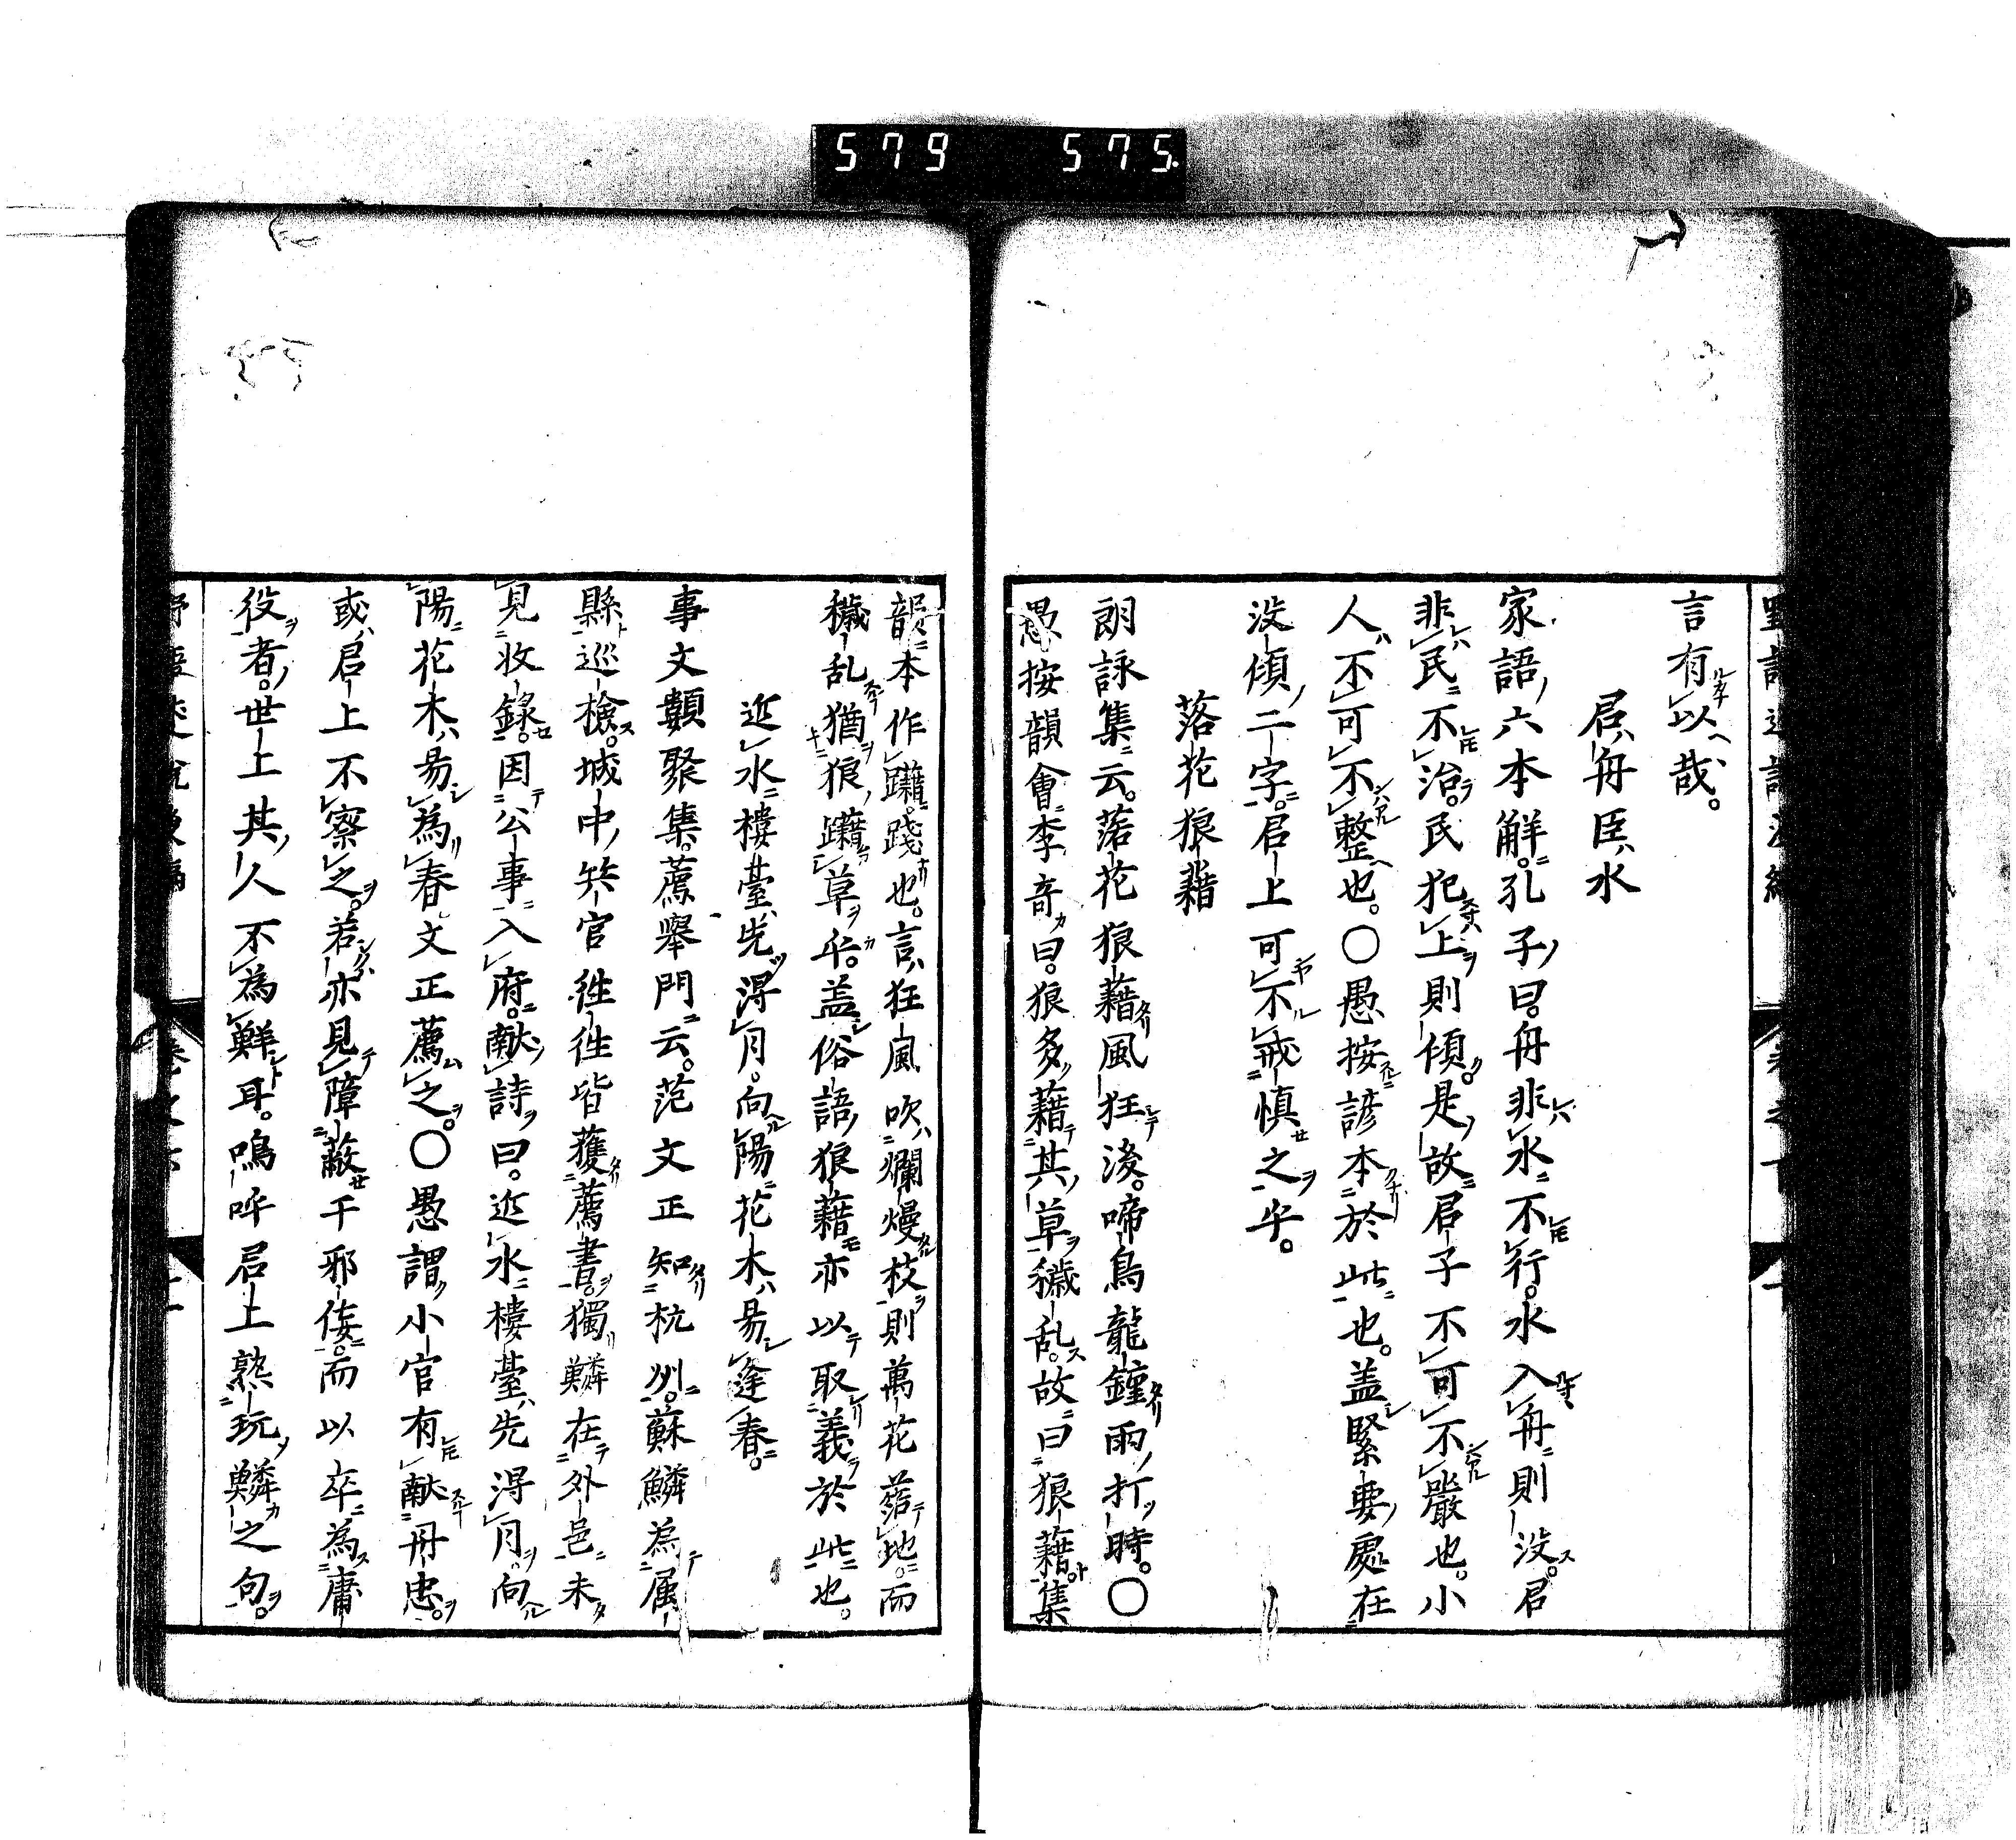 579 575.
言有以哉。
君舟臣水
家語六本解。孔子曰。舟非水不行。水入舟則没。君
非民不治。民犯上則傾。是故君子不可不嚴也。小
人不可不整也。〇愚按諺本於此也。盖緊要處在
没傾二字。君上可不戒慎之乎。
落花狼藉
朗詠集云。落花狼藉風狂後。啼鳥龍鐘雨打時。〇
愚按韻會李奇曰。狼多藉其草穢乱。故曰狼藉。集
韻本作躤。踐也。言狂風吹爛熳枝則萬花落地。而
穢乱猶狼躤草乎。盖俗語狼藉亦以取義於此也。
近水樓臺先得月。向陽花木易逢春。
事文類聚集。薦舉門云。范文正知杭州。蘇鱗為属
縣巡檢。城中兵官徃徃皆獲薦書。獨鱗在外邑未
見收錄。因公事入府。献詩曰。近水樓臺先得月。向
陽花木易為春文正薦之。〇愚謂小官有献丹忠。
或君上不察之。若亦見障蔽于邪佞。而以卒為庸
役者。世上其人不為鮮耳。嗚呼君上熟玩鱗之句。